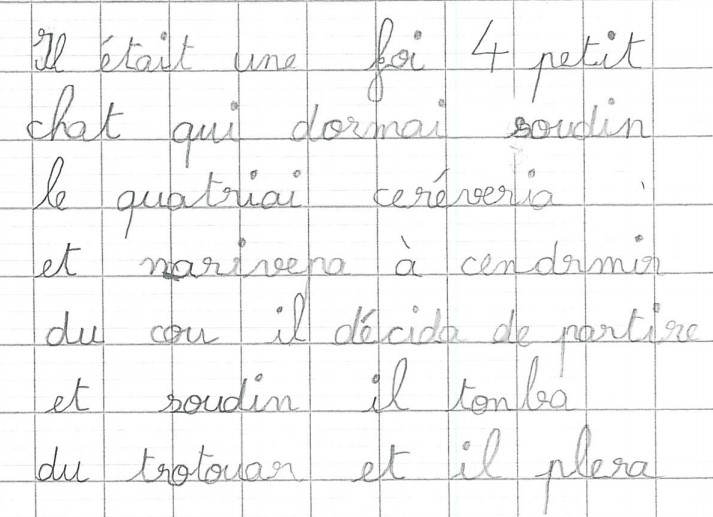 Il était une foi 4 petit
chat qui dormai soudin
le quatriai ceréveria
et narivepa à cendrmir
du cou il décida de partire
et soudin il tonba
du trotouar et il plera